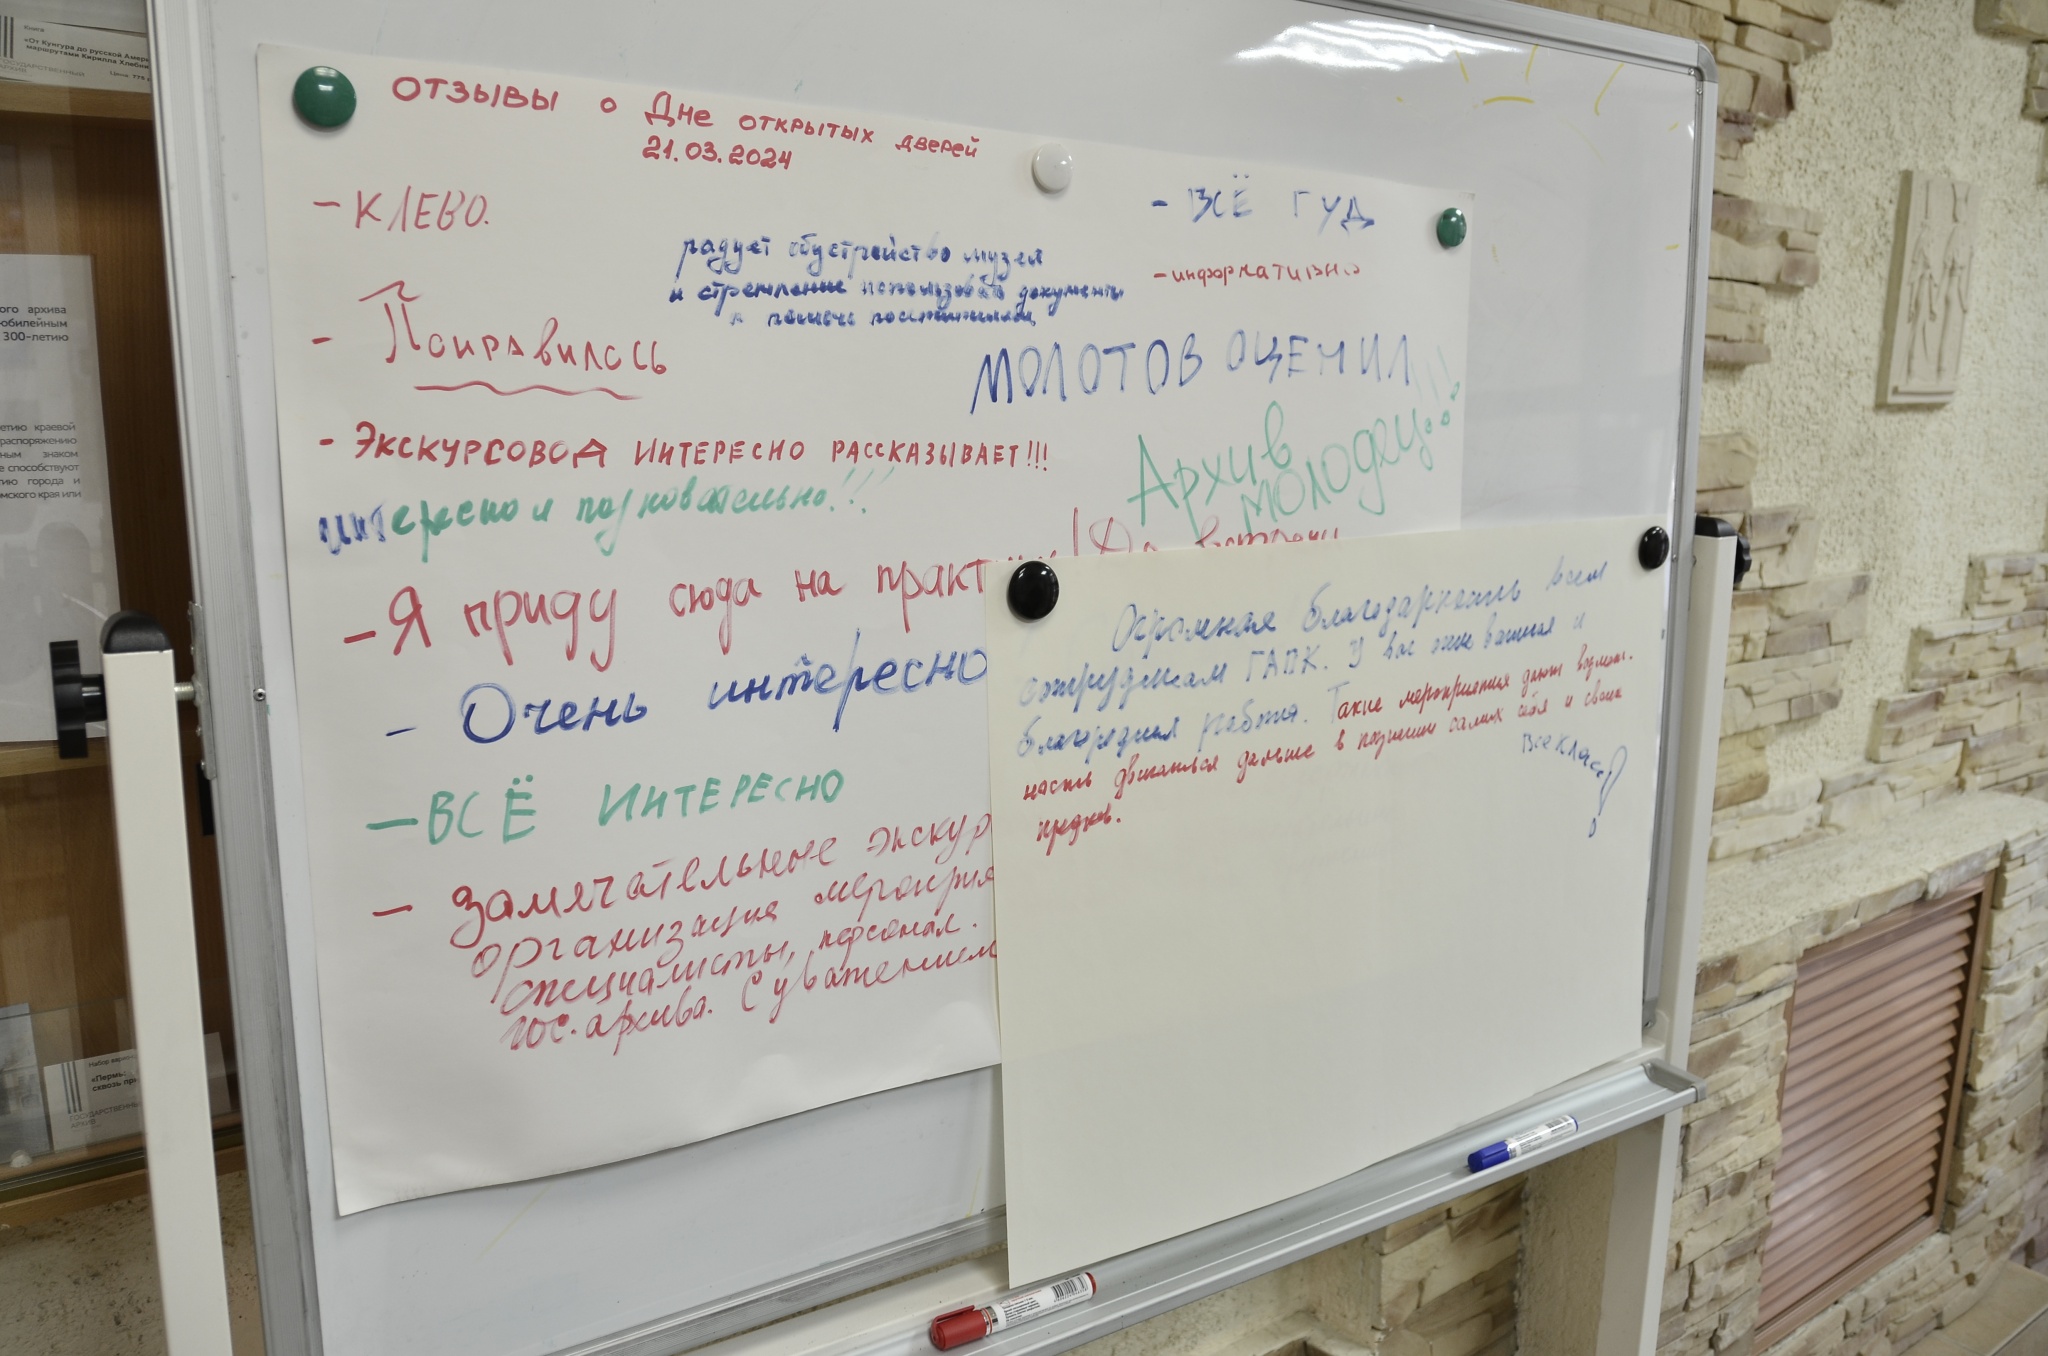 Книга
«От Кунгура до русской Амер
маршрутами Кирилла Хлебни
ГОСУДАРСТВЕННЫЙ
АРХИВ
Цена: 775
ого архива
юбилейным
300-летию
етию краевой
распоряжению
ным знаком
е способствуют
тию города и
мского края или
Набор
«Пермь:
сквозь при
ГОСУДАРСТВЕННЫ
АРХИВ
ОТЗЫВЫ о Дне открытых дверей
21.03.2024
- КЛЕВО.
- Понравилось
- Экскурсовод интересно рассказывает!!!
интересно и познавательно!!!
- Я приду сюда на практ
! До встречи
- Очень интересно
- ВСЁ ИНТЕРЕСНО
- Замечательные экскур
организация мероприя
специалисты, персонал.
гос.архива. С уважением
радует обустройство музея
и стремление использовать документы
в помощь посетителям
- ВСЁ ГУД
- информативно
МОЛОТОВ ОЦЕНИЛ!!!
Архив
молодец!!!
Огромная благодарность всем
сотрудникам ГАПК. У вас очень важная и
благородная работа. Такие мероприятия дают возмож-
ность двигаться дальше в познании самих себя и своих
предков.
все класс!